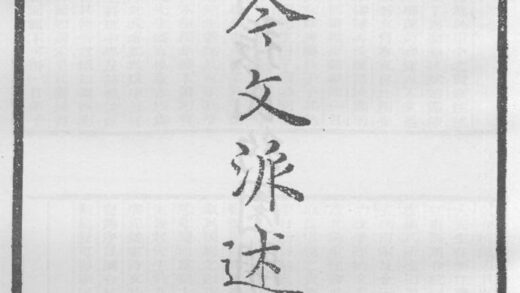 今文派述